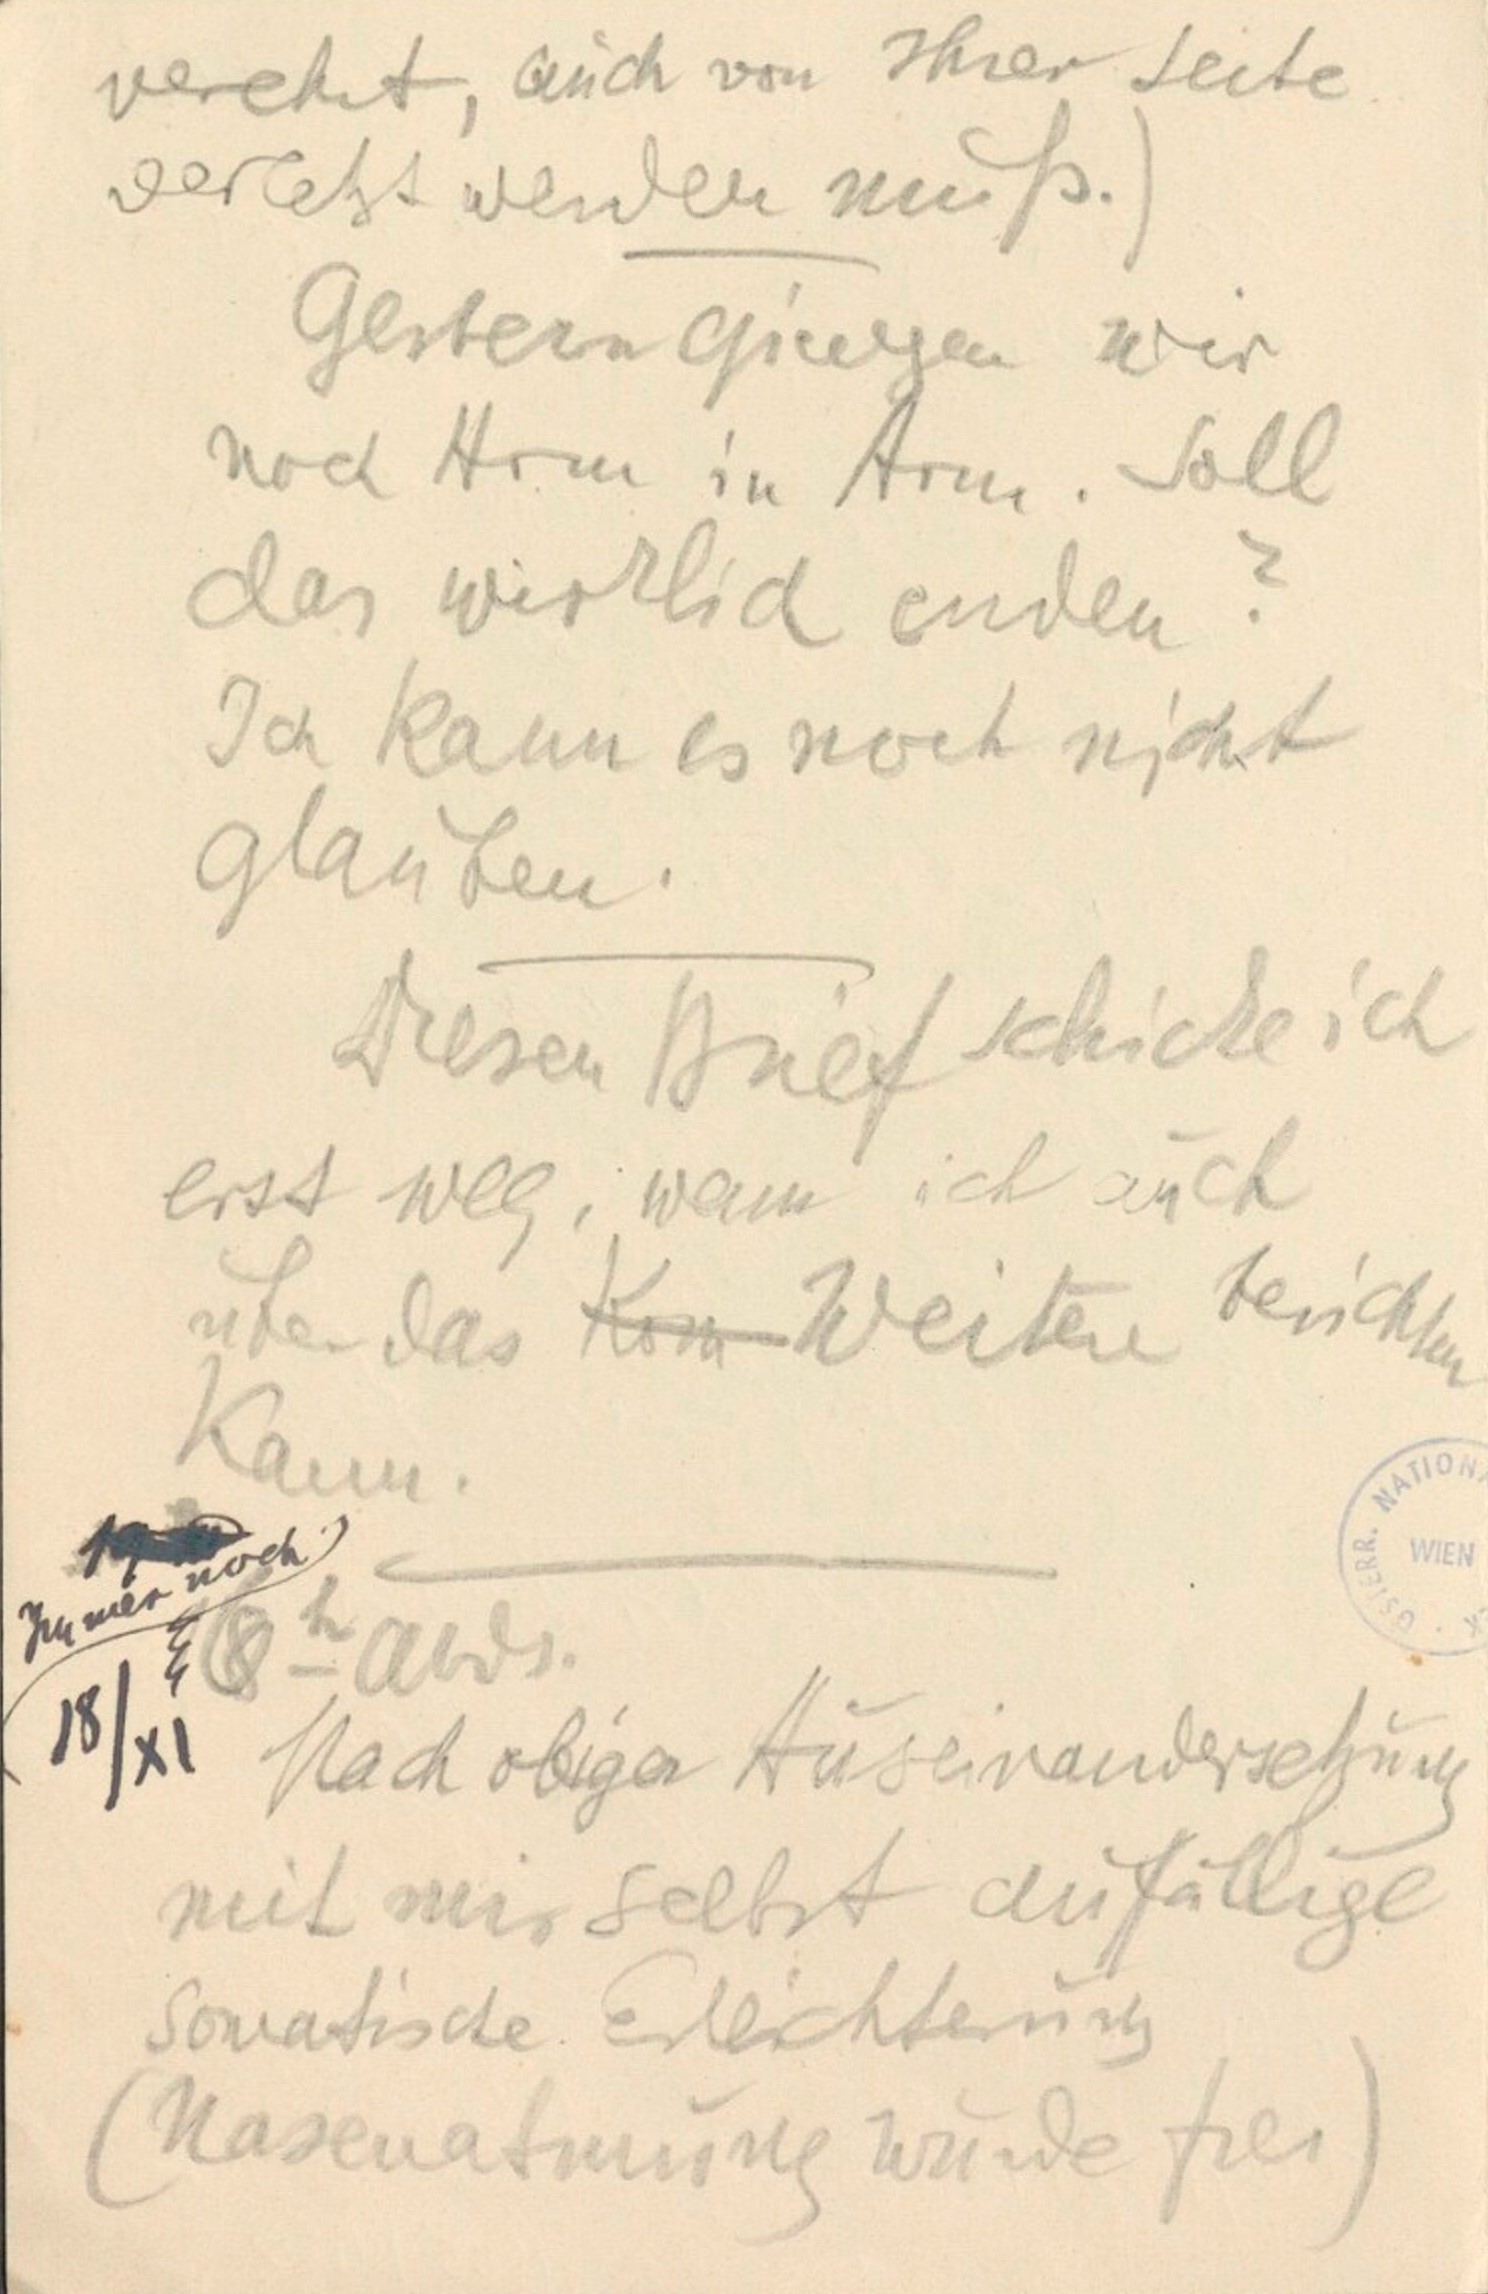 verehrt, auch von Ihrer Seite
verletzt werden muß.)
Gestern giengen wir
noch Arm in Arm. Soll
das wirklich enden?
Ich kann es noch nicht
glauben.
Diesen Brief schicke ich
erst weg, wann ich auch
über das Kom Weitere berichten
kann.
Immer noch)
18/XI
8h abds.
Nach obiger Auseinandersetzung
mit mir selbst aufällige
somatische Erleichterung
(Nasenatmung wurde frei)
ÖSTERR. NATIONA
WIEN